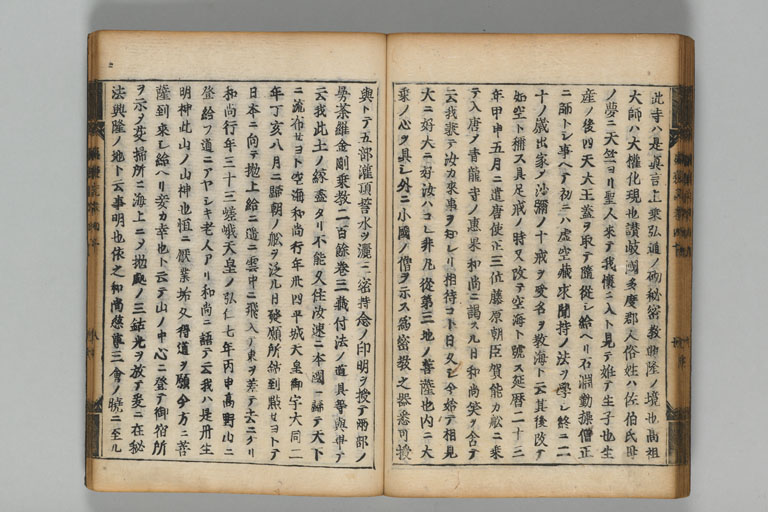 此寺ハ是眞言上乗弘通ノ砌秘密教力興隆ノ境也高祖
大師ハ大權化現也讃岐國多度郡人俗姓ハ佐伯氏母
ノ夢ニ天竺ヨリ聖人来テ我懐ニ入ト見テ姙テ生子也生
産ノ後四天大王蓋ヲ取テ隨從シ給ヘリ石淵勤操僧正
ニ師トシ事ヘテ初ニハ虚空蔵求聞持ノ法ヲ學シ終ニ二
十ノ歳出家ノ沙彌ノ十戒ヲ受名ヲ教海ト云其後改テ
如空ト稱ス具足戒ノ時又改テ空海ト號ス延暦二十三
年甲申五月ニ遣唐使正三位藤原朝臣賀能カ舩ニ乗
テ入唐ノ青龍寺ノ惠果和尚ニ謁スルヰ和尚笑ヲ含テ
云我兼テ汝カ来事ヲ知レリ相待コト日久シ今始テ相見
大ニ好大ニ好汝ハコレ非凡從第三地ノ菩薩也内ニ大
乗ノ心ヲ具シ外ニ小國ノ僧ヲ示ス為密教之器悉可授
興トテ五部灌頂誓水ヲ灑三密持念ノ印明ヲ授テ兩部ノ
曼荼羅金剛乗教二百餘巻三蔵付法ノ道具等與畢テ
云我此土ノ縁盡タリ不能久住汝速ニ本國ニ歸テ天下
ニ流布セヨト空海和尚行年卅四平城天皇御宇大同二
年丁亥八月ニ歸朝ノ舩ヲ泛ル日發願所納到點セヨトテ
日本ニ向テ抛上給ニ遥ニ雲中ニ飛入ノ東ヲ差テ去ニケリ
和尚行年三十三嵯峨天皇ノ弘仁七年丙申高野山ニ
登給フ道ニアヤシキ老人アリ和尚ニ語テ云我ハ是丹生
明神此山ノ山神也恒ニ厭業垢久得道ヲ願今方ニ菩
薩到来シ給ヘリ妾カ幸也ト云テ山ノ中心ニ登テ御宿所
ヲ示ノ芟掃所ニ海上ニノ抛處ノ三鈷光ヲ放テ爰ニ在秘
法興隆ノ地ト云事明也依之和尚慈尊三會ノ曉ニ至ル